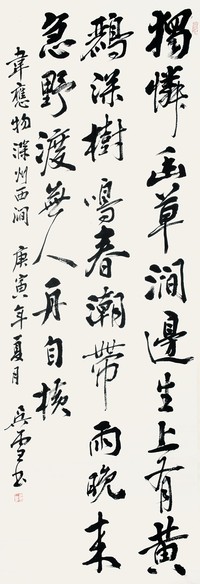 獨憐幽草澗邊生上有黃
鸝深樹鳴春潮帶雨晚來
急野渡無人舟自橫
韋應物滁州西澗 庚寅年夏月 吳雪书